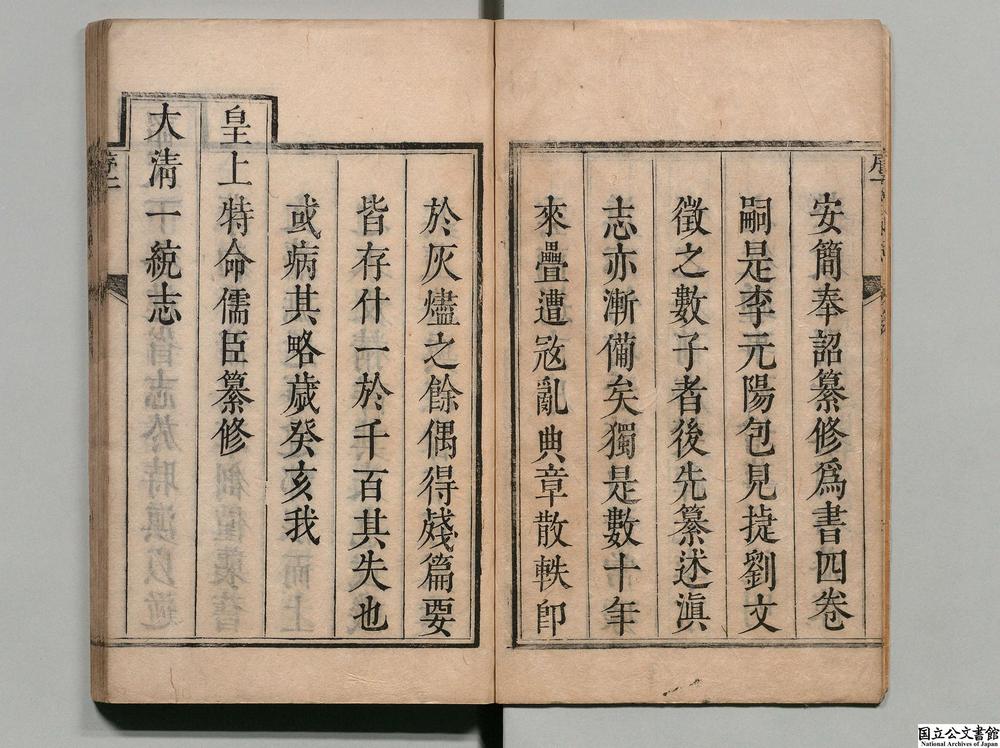 安簡奉詔纂修爲書四卷
嗣是李元陽包見捷劉文
徵之數子者後先纂述滇
志亦漸備矣獨是數十年
來疊遭寇亂典章散軼卽
於灰燼之餘偶得殘篇要
皆存什一於千百其失也
或病其略歲癸亥我
皇上特命儒臣纂修
大淸一統志
序二
国立公文書館
National Archives of Japan